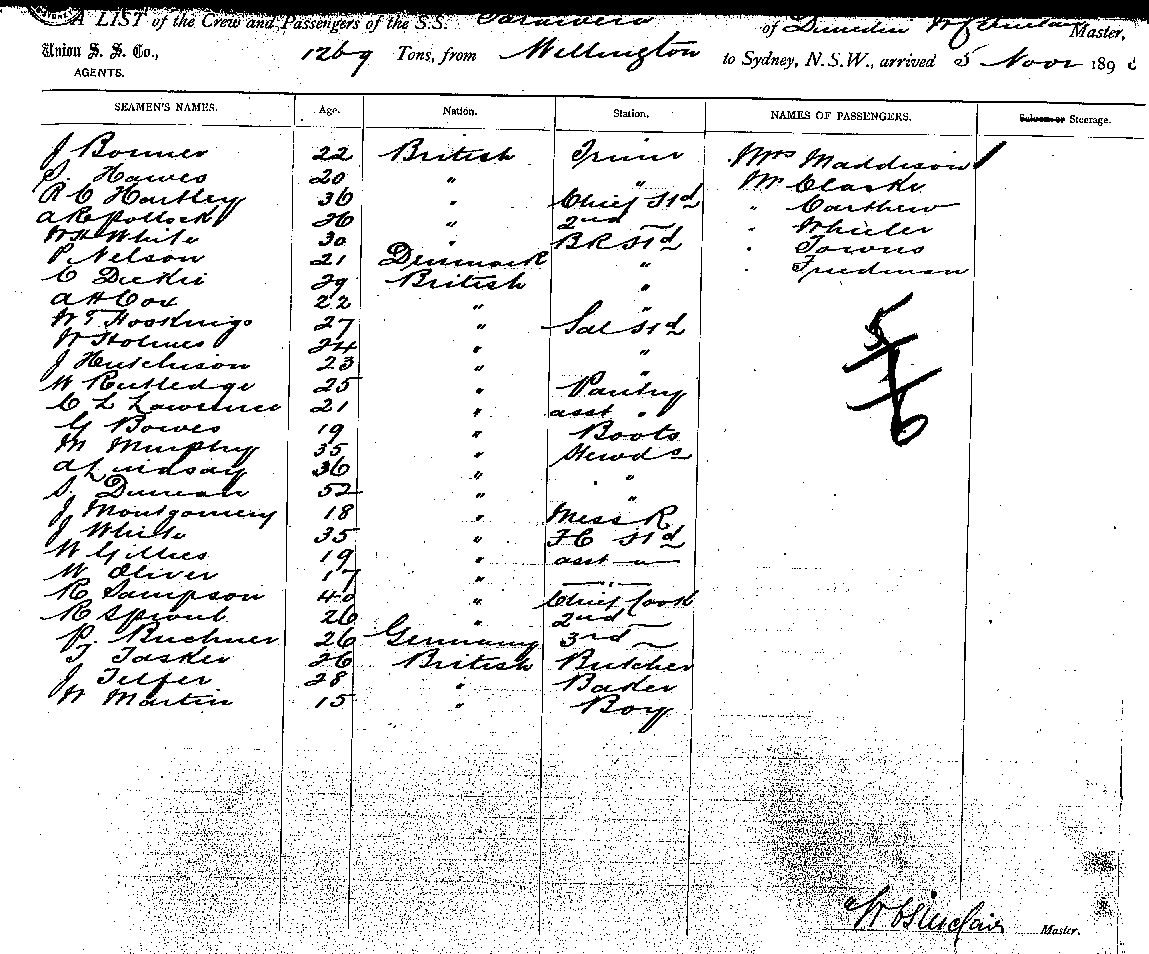 A LIST of the Crew and Passengers of the S.S. Tarawera of Dunedin W C Sinclair Master,
Union S. S. Co., 1269 Tons, from Wellington to Sydney, N.S.W., arrived 5 Novr 189
AGENTS.
SEAMEN'S NAMES. Age. Nation. Station. NAMES OF PASSENGERS. Saloon or Steerage.
J Bonner 22 British Trimr Mrs Maddison /
S. Hawes 20 " " Mr Clarke
R C Hartley 36 " Chief Std " Carthew
A R Pollock 26 " 2nd — " Wheeler
W H White 30 " B R Std " Towns
P. Nelson 21 Denmark " " Friedman
C Dickie 29 British "
A H Cox 22 " "
W T Hoskings 27 " Sal Std
W Holmes 24 " "
J Hutchison 23 " "
W Rutledge 25 " Pantry
C L Lawrence 21 " asst "
G Bowes 19 " Boots
M Murphy 35 " Stewds
A Lindsay 36 " "
S. Duncan 52 " "
J Montgomery 18 " Mess R
J White 35 " F C Std
W Gillies 19 " asst — " —
W Oliver 17 " — " —
R Sampson 40 " Chief Cook
R Sproul 26 " 2nd —
P. Buchner 26 Germany 3rd —
T Tasker 26 British Butcher
J Telfer 28 " Baker
W Martin 15 " Boy
5/1/6
W C Sinclair Master.